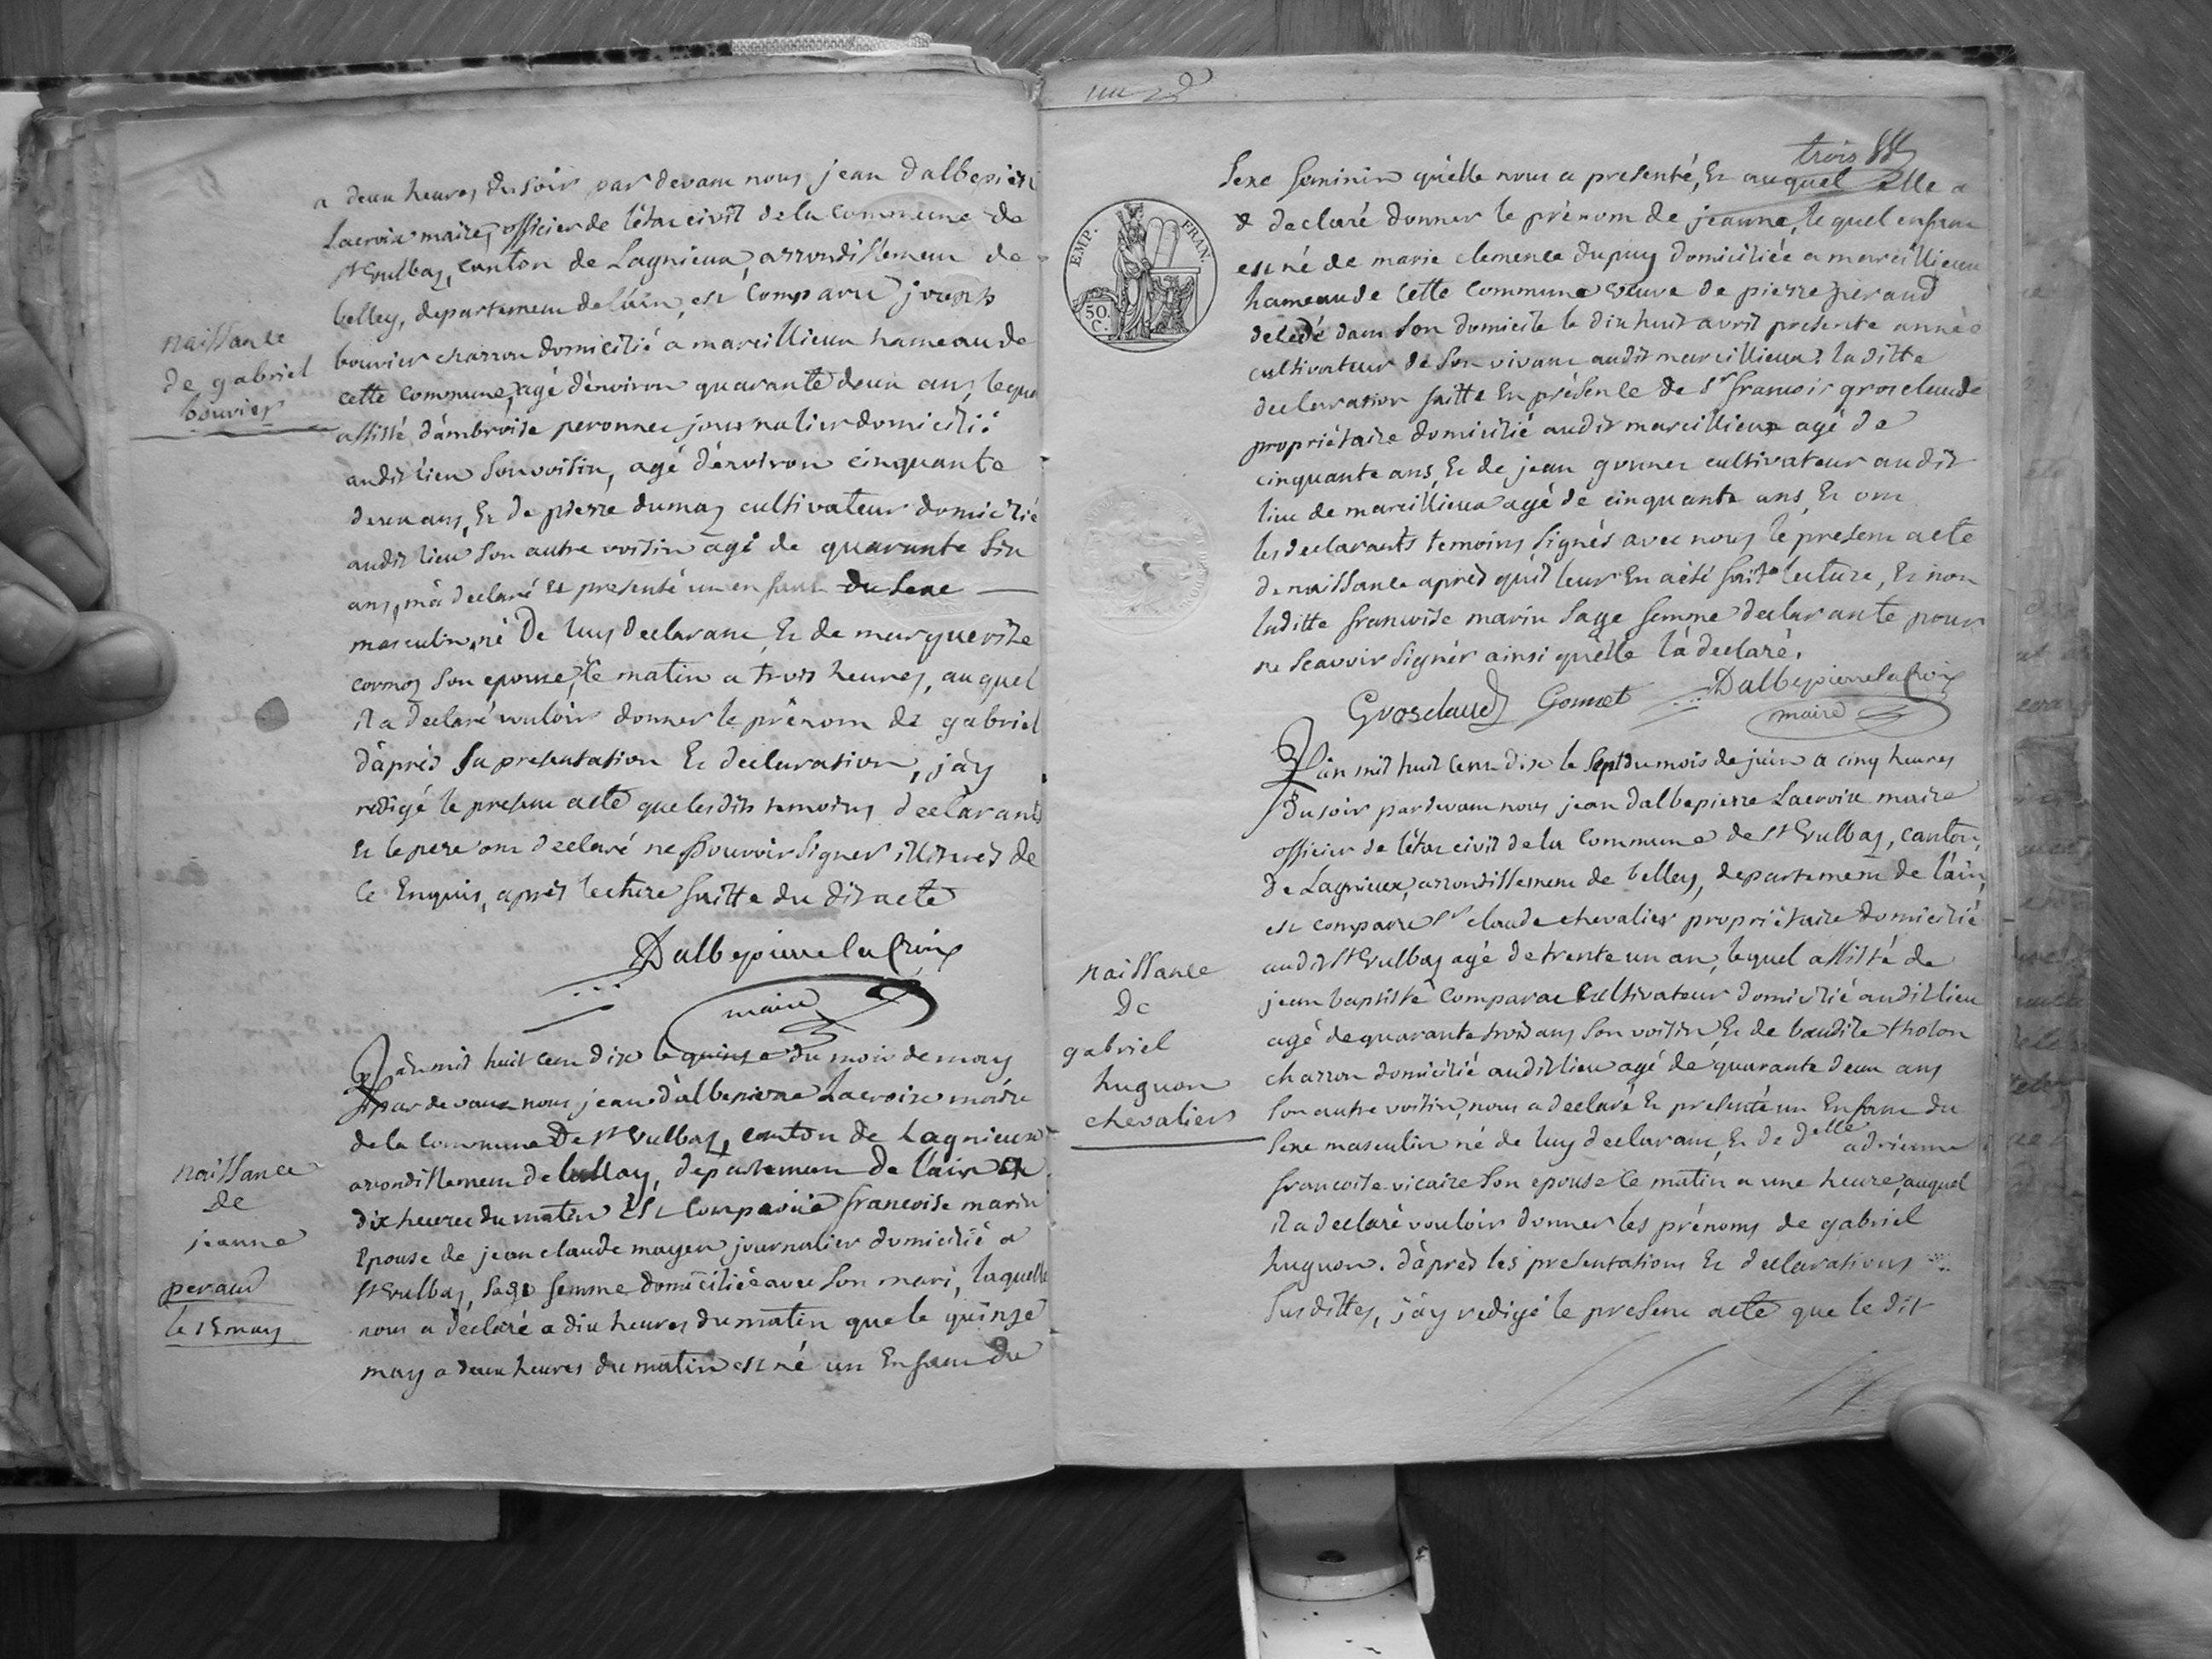 a deux heures du soir par devant nous jean dalbepierre
Lacroix maire, officier de létat civil de la commune de
st Vulbas, canton de Lagnieux, arrondissement de
belley, departement de lain, est comparu joseph
bouvier charron domicilié a marcillieux hameau de
cette commune, agé dénviron quarante deux ans, lequel
assisté dámbroise peronnet journalier domicilié
audit lieu son voisin, agé dénviron cinquante
deux ans, Et de pierre dumas cultivateur domicilié
audit lieu son autre voisin agé de quarante six
ans, m'a declaré et presenté un enfant du sexe
masculin, né De luy declarant, Et de marguerite
cormoz son epouse, le matin a trois heures, auquel
il a declaré vouloir donner le prénom de gabriel
dáprès sa presentation Et declaration, jáy
redigé le present acte que lesdits temoins declarants
Et le pere ont declaré ne pouvoir signer illitirés de
ce Enquis, après lecture faitte du dit acte
Dalbepierre la Croix
maire
naissance
de gabriel
bouvier
Lán mil huit cent dix le quinze du mois de may
par devant nous jean dálbepierre Lacroix maire
de la commune De st Vulbas, canton de Lagnieux
arrondissement de belley, departement de lain a
dix heures du matin Est comparüe francoise marin
Epouse de jean claude mayen journalier domicilié a
st Vulbas, sage femme domiciliée avec son mari, laquelle
nous a declaré a dix heures du matin que le quinze
may a deux heures du matin est né un Enfant du
naissance
de
jeanne
peraud
le 15 may
trois
sexe feminin quélle nous a presenté, Et auquel Elle a
declaré donner le prénom de jeanne, le quel enfant
est né de marie clemence dupuy domiciliée a marcillieux
hameau de cette commune veuve de pierre peraud
décédé dans son domicile le dix huit avril presente année
cultivateur de son vivant audit marcillieux. la ditte
declaration faitte En présence de sr francois grosclaude
propriétaire domicilié audit marcillieux agé de
cinquante ans, Et de jean gonnet cultivateur audit
lieu de marcillieux agé de cinquante ans, Et ont
les declarants temoins signés avec nous le present acte
de naissance après quíl leur En a été faitte lecture, Et non
laditte francoise marin sage femme declarante pour
ne scavoir signér ainsi quélle lá declaré.
Grosclaude Gonnet Dalbepierre la Croix
maire
EMP. FRAN.
50. C.
Lán mil huit cent dix le sept du mois de juin a cinq heures
du soir par devant nous jean dalbepierre Lacroix maire
officier de létat civil de la commune de st Vulbas, canton,
de Lagnieux, arrondissement de belley, departement de láin,
est comparu sr claude chevalier propriétaire domicilié
audit st Vulbas agé de trente un an, lequel assisté de
jean baptiste comparat cultivateur domicilié audit lieu
agé de quarante trois ans son voisin, Et de baudile tholon
charron domicilié audit lieu agé de quarante deux ans
son autre voisin, nous a declaré Et presenté un Enfant du
sexe masculin né de luy declarant, Et de delle adrienne
francoise vicaire son epouse ce matin a une heure, auquel
il a declaré vouloir donner les prénoms de gabriel
huguon. dáprès les presentations Et declarations
susdittes, jáy redigé le present acte que le dit
naissance
De
gabriel
huguon
chevalier